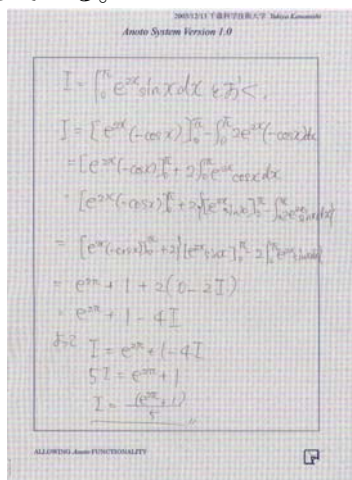 2003/12/13 千歳科学技術大学
Anoto System Version 1.0
I = ∫₀^π e^{2x} sin x dx とおく。
I = [e^{2x}(-cos x)]₀^π - ∫₀^π 2e^{2x}(-cos x)dx
= [e^{2x}(-cos x)]₀^π + 2∫₀^π e^{2x} cos x dx
= [e^{2x}(-cos x)]₀^π + 2{[e^{2x} sin x]₀^π - ∫₀^π 2e^{2x} sin x dx}
= [e^{2x}(-cos x)]₀^π + 2{[e^{2x} sin x]₀^π - 2∫₀^π e^{2x} sin x dx}
= e^{2π} + 1 + 2(0 - 2I)
= e^{2π} + 1 - 4I
よって I = e^{2π} + 1 - 4I
5I = e^{2π} + 1
I = (e^{2π} + 1)/5
ALLOWING Anoto FUNCTIONALITY